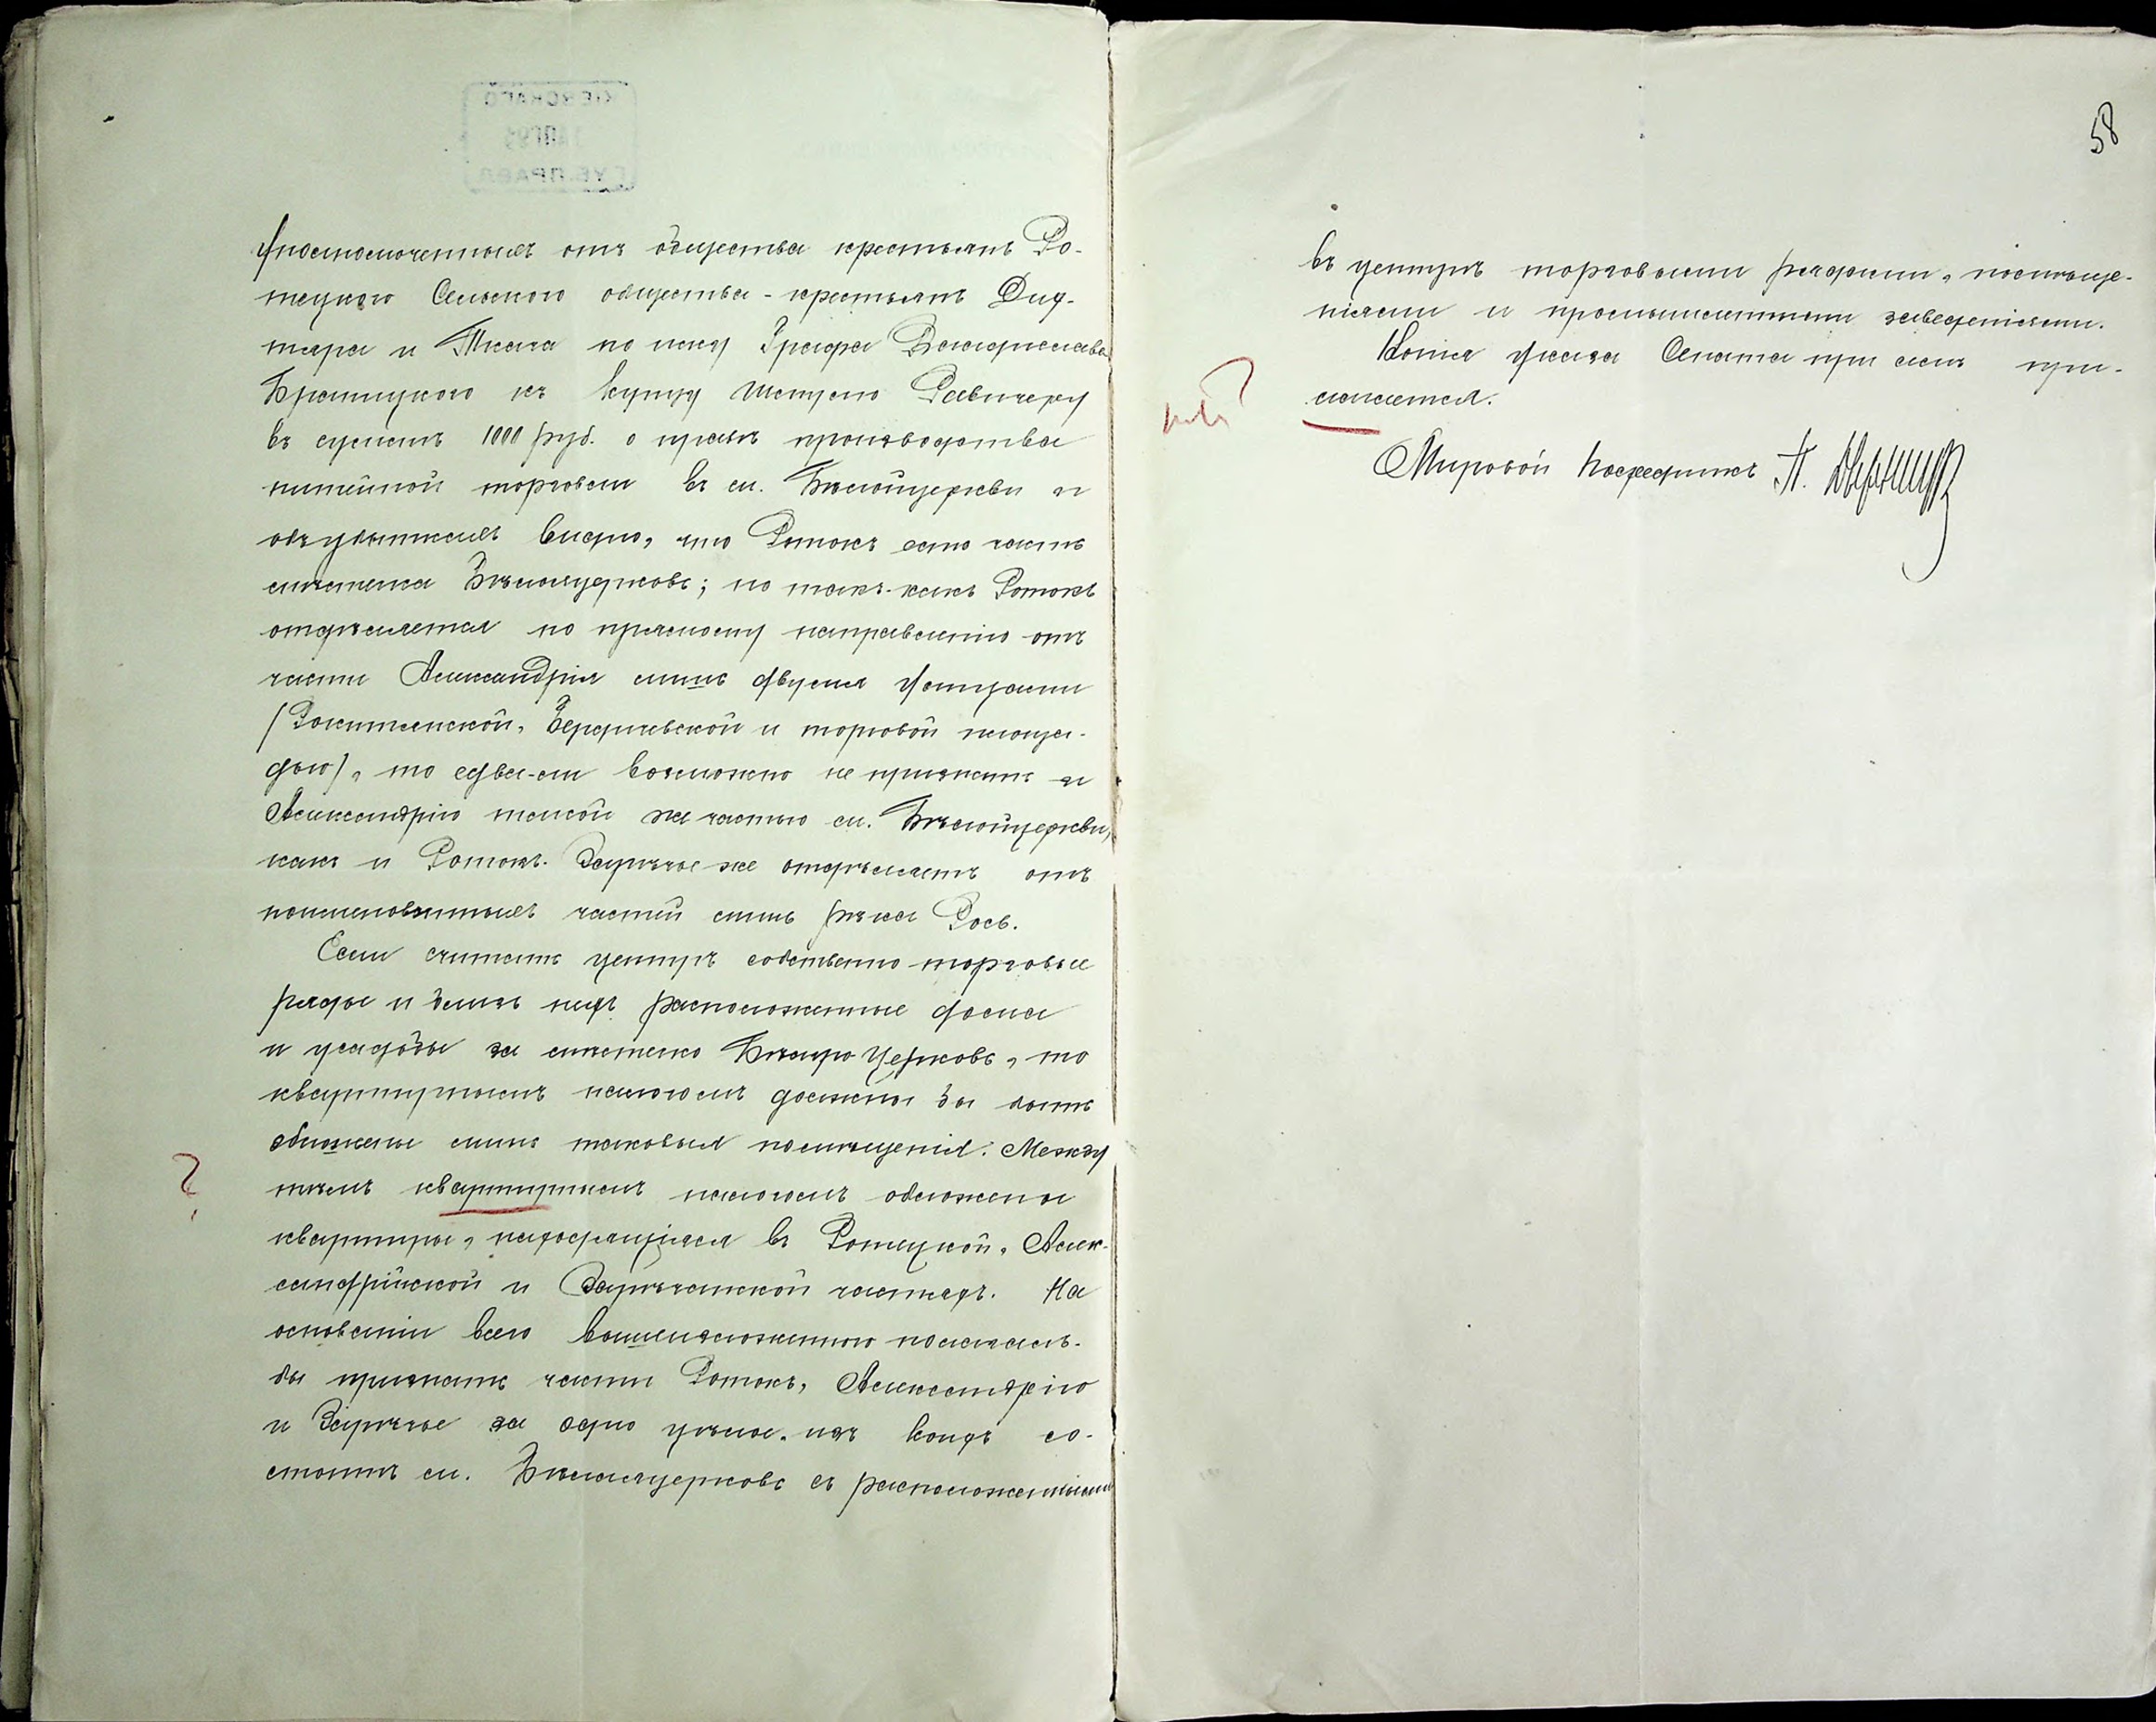 58
уполномоченныхъ отъ общества крестьянъ Ро-
тецкого Сельского общества - крестьянъ
и Ткача по иску Графа Владислава
Браницкого къ купцу Равичеру
въ суммѣ 1000 руб. о правѣ производства
питейной торговли въ м. Бѣлойцеркви и
видно, что Ротокъ есть часть
мѣстечка Бѣлаяцерковь; но такъ-какъ Ротокъ
отдѣляется по прямому направленію отъ
части Александрія лишь двумя улицами
(Рокитянской, Бердичевской и торговой площа-
дью), то едва-ли возможно не признать и
Александрію такой же частью м. Бѣлойцеркви,
какъ и Ротокъ. Зарѣчье-же отдѣляетъ отъ
поименованныхъ частей лишь рѣка Рось.
Если считать центръ собственно торговые
ряды и близъ нихъ расположенные дома
и усадьбы за мѣстечко Бѣлую Церковь, то
квартирнымъ налогомъ должны бы быть
обложены лишь таковыя помѣщенія. Между
тѣмъ квартирнымъ налогомъ обложены
квартиры, находящіяся въ Ротецкой, Алек-
сандрійской и Зарѣчанской частяхъ. На
основаніи всего вышеизложеннаго полагалъ-
бы признать части Ротокъ, Александрію
и Зарѣчье за одно цѣлое, изъ коихъ со-
стоитъ м. Бѣлаяцерковь съ расположенными
?
въ центрѣ торговыми рядами, помѣще-
ніями и промышленными заведеніями.
Копія Указа Сената при семъ при-
лагается.
?
Мировой Посредникъ П.